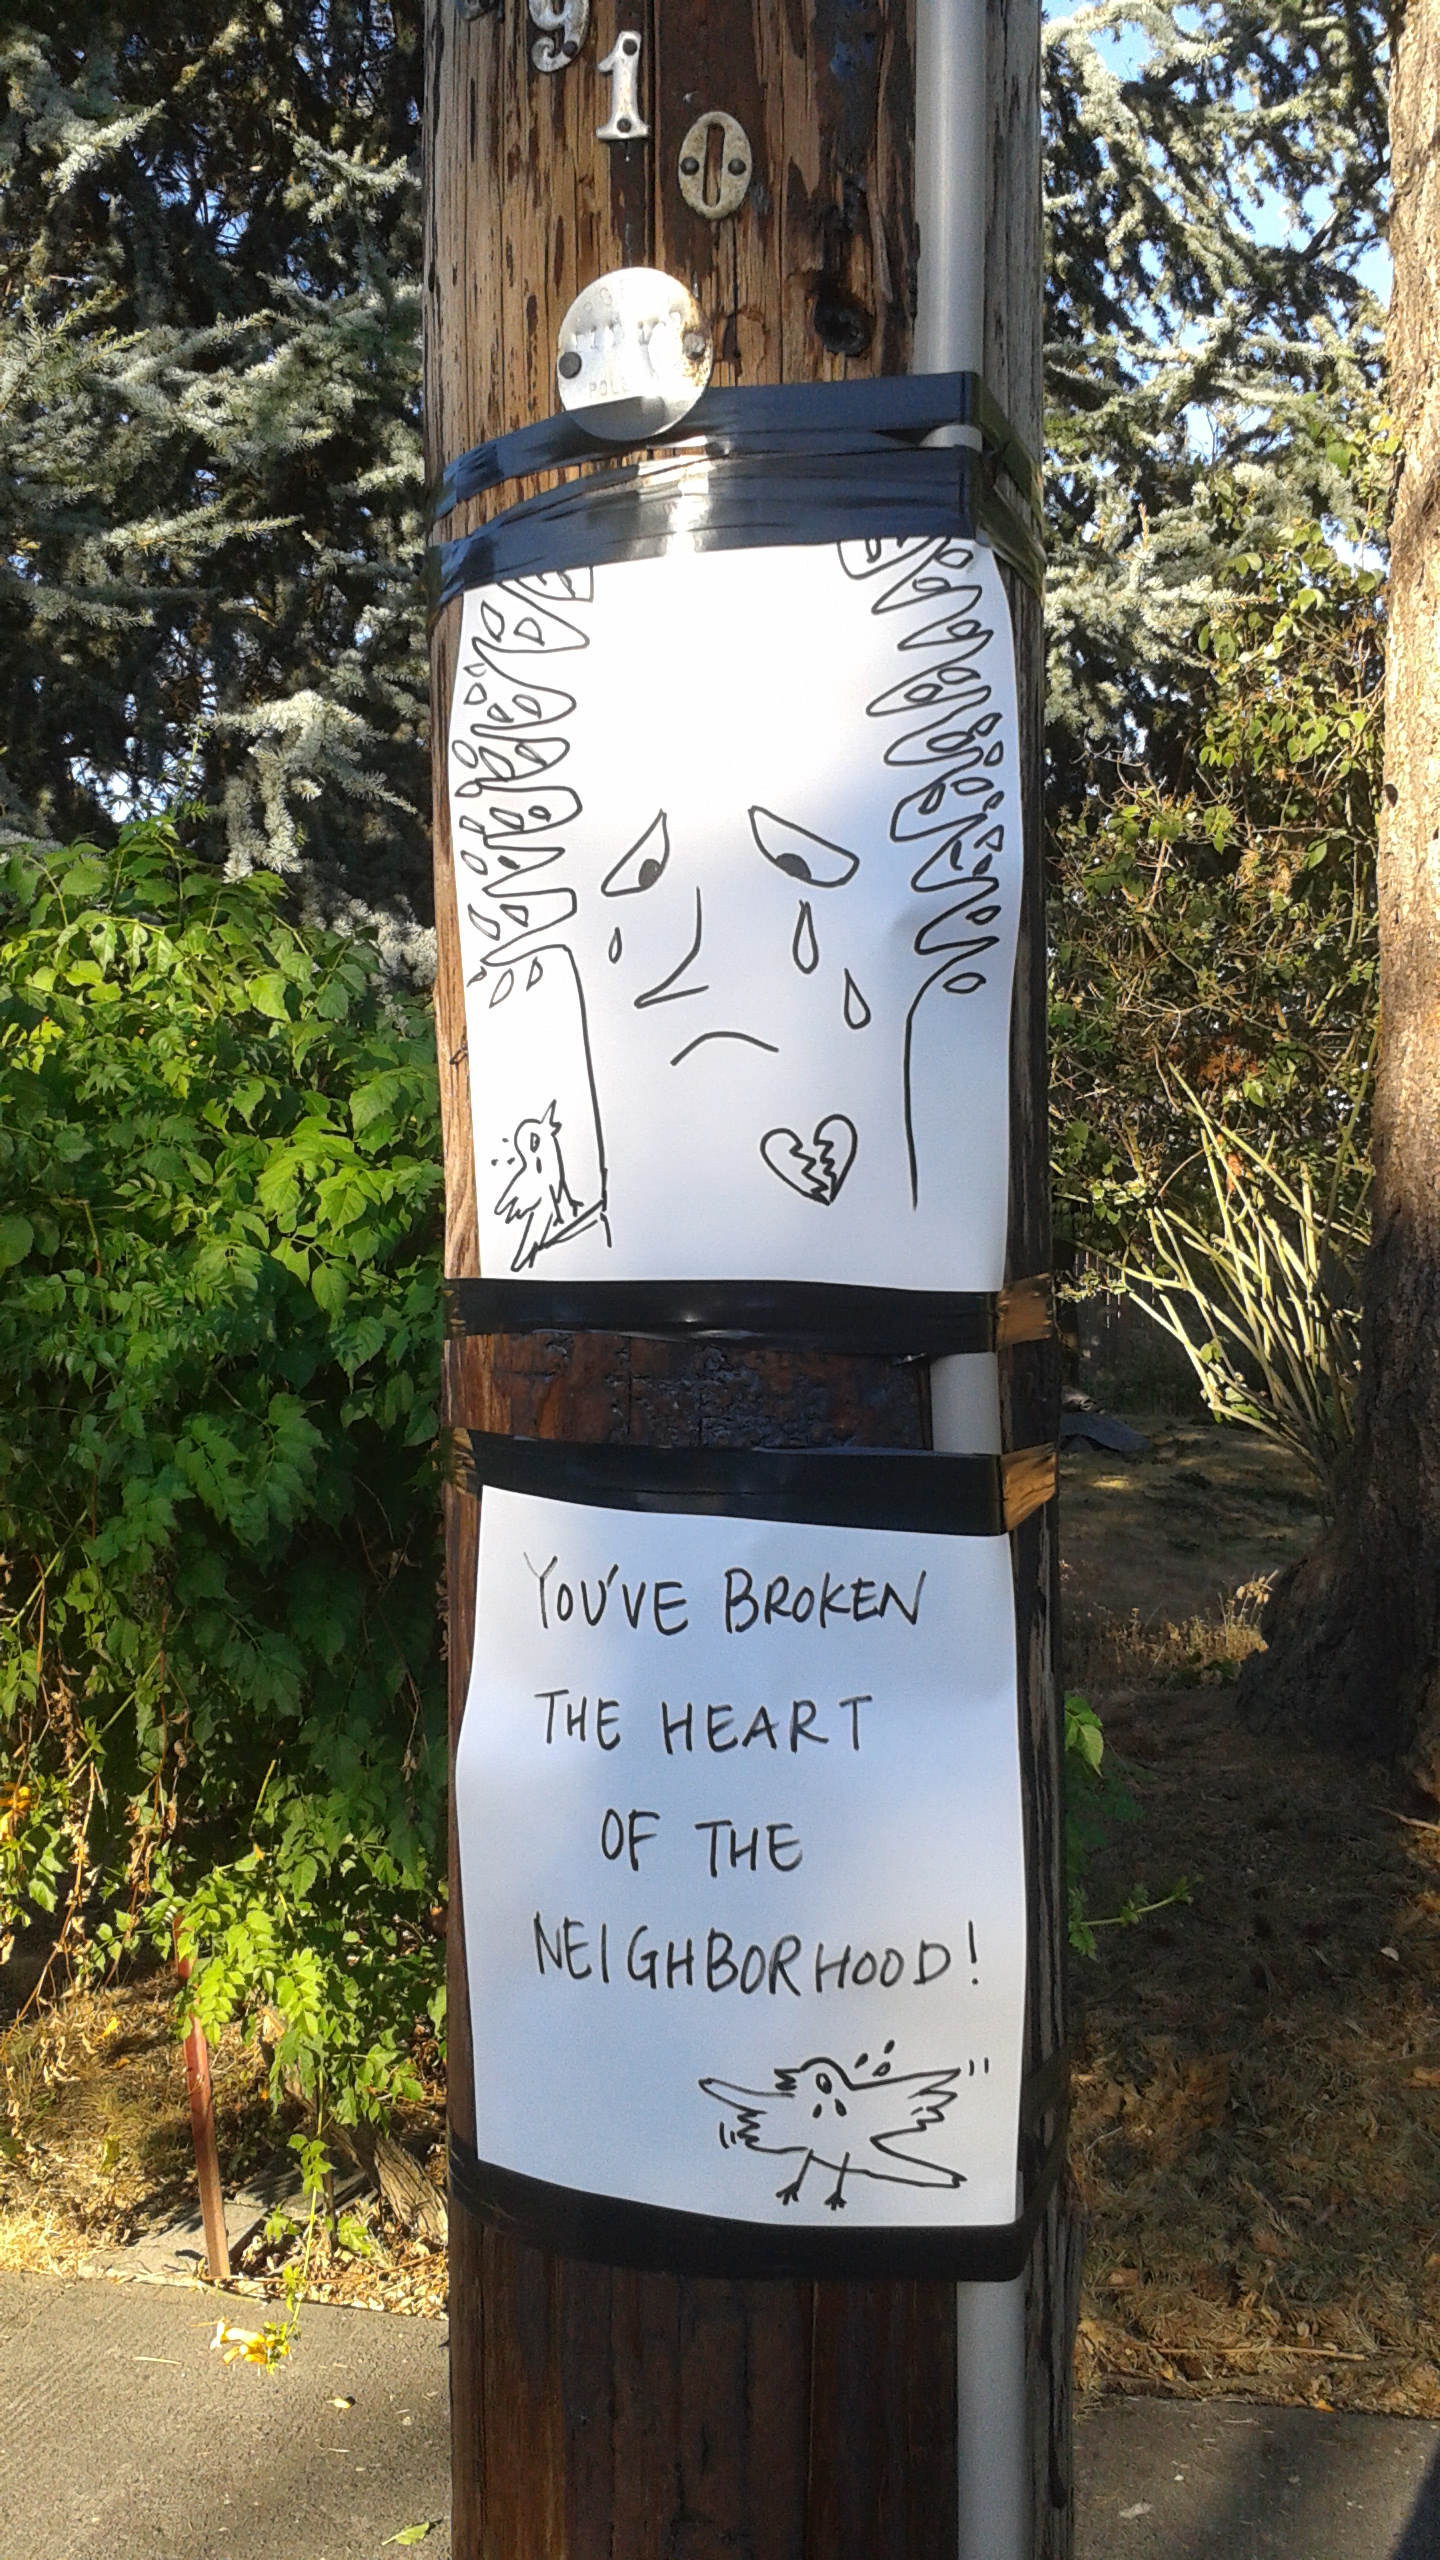 910
POLE
YOU'VE BROKEN
THE HEART
OF THE
NEIGHBORHOOD!